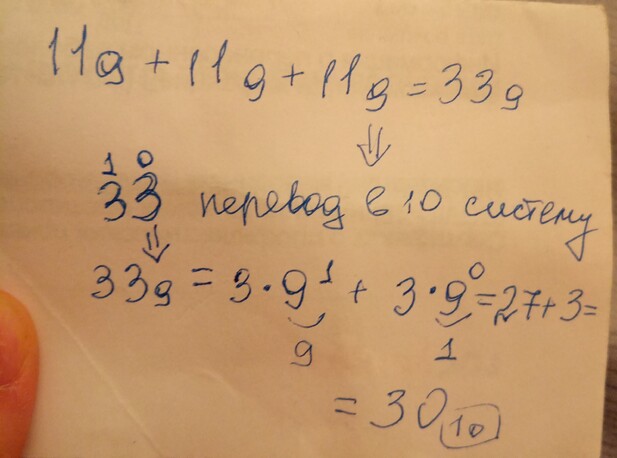 11₉ + 11₉ + 11₉ = 33₉
⇓
1 0
33 перевод в 10 систему
⇓
33₉ = 3·9¹ + 3·9⁰ = 27 + 3 =
9 1
= 30₁₀